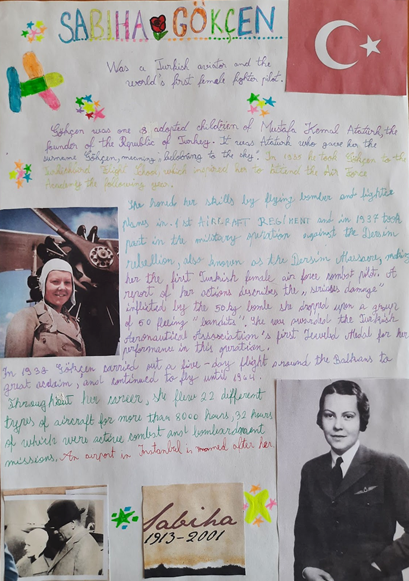 SABIHA GÖKÇEN
Was a Turkish aviator and the
world's first female fighter pilot.
Gökçen was one 8 adopted children of Mustafa Kemal Atatürk, the
founder of the Republic of Turkey. It was Atatürk who gave her the
surname Gökçen, meaning "belonging to the sky". In 1935 he took Gökçen to the
Flight School, which inspired her to attend the Air Force
Academy the following year.
She honed her skills by flying bomber and fighter
planes in 1st AIRCRAFT REGIMENT and in 1937 took
part in the military operation against the Dersim
rebellion, also known as the Dersim Massacre, making
her the first Turkish female air force combat pilot. A
report of her actions describes the "serious damage"
inflicted by the 50 kg bomb she dropped upon a group
of 50 fleeing "bandits". She was awarded the Turkish
Aeronautical Association's first Jeweled Medal for her
performance in this operation.
In 1938 Gökçen carried out a five-day flight around the Balkans to
great acclaim, and continued to fly until 1964.
Throughout her career, she flew 22 different
types of aircraft for more than 8000 hours, 32 hours
of which were active combat and bombardment
missions. An airport in Instanbul is named after her.
Sabiha
1913-2001